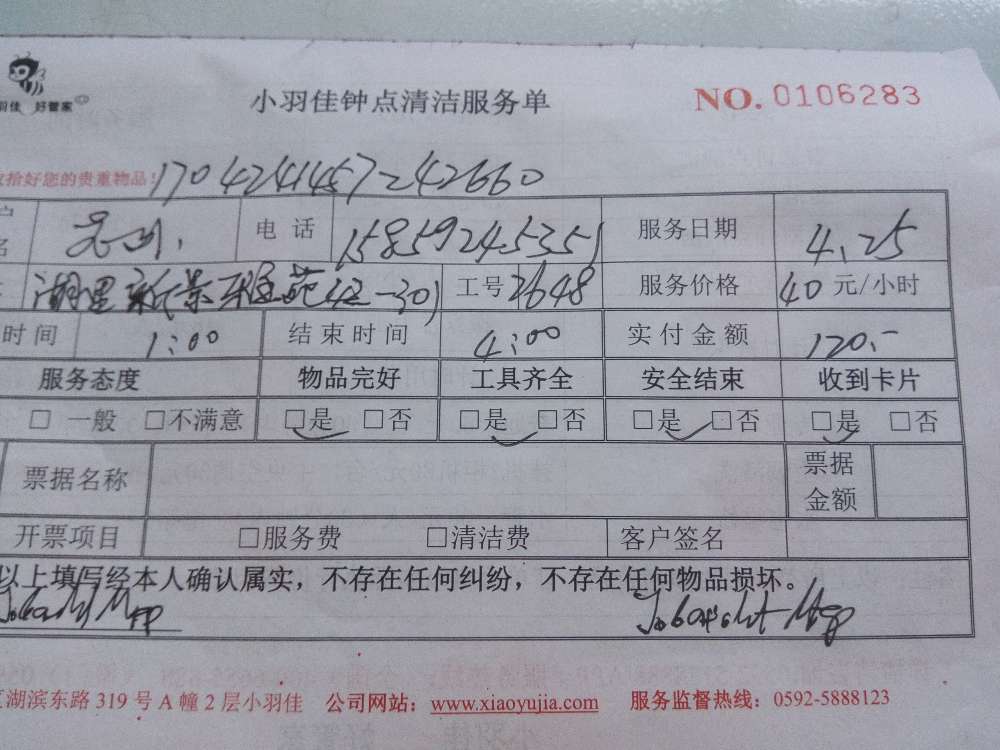 羽佳 好管家
小羽佳钟点清洁服务单 NO. 0106283
拾好您的贵重物品! 170424145724266O
户名 电话 15859245351 服务日期 4.25
湖里 景 苑42-301 工号 2648 服务价格 40 元/小时
时间 1:00 结束时间 4:00 实付金额 120.-
服务态度 物品完好 工具齐全 安全结束 收到卡片
□ 一般 □不满意 □是 □否 □是 □否 □是 □否 □是 □否
票据名称 票据金额
开票项目 □服务费 □清洁费 客户签名
以上填写经本人确认属实，不存在任何纠纷，不存在任何物品损坏。
湖滨东路 319 号 A 幢 2 层小羽佳 公司网站：www.xiaoyujia.com 服务监督热线：0592-5888123